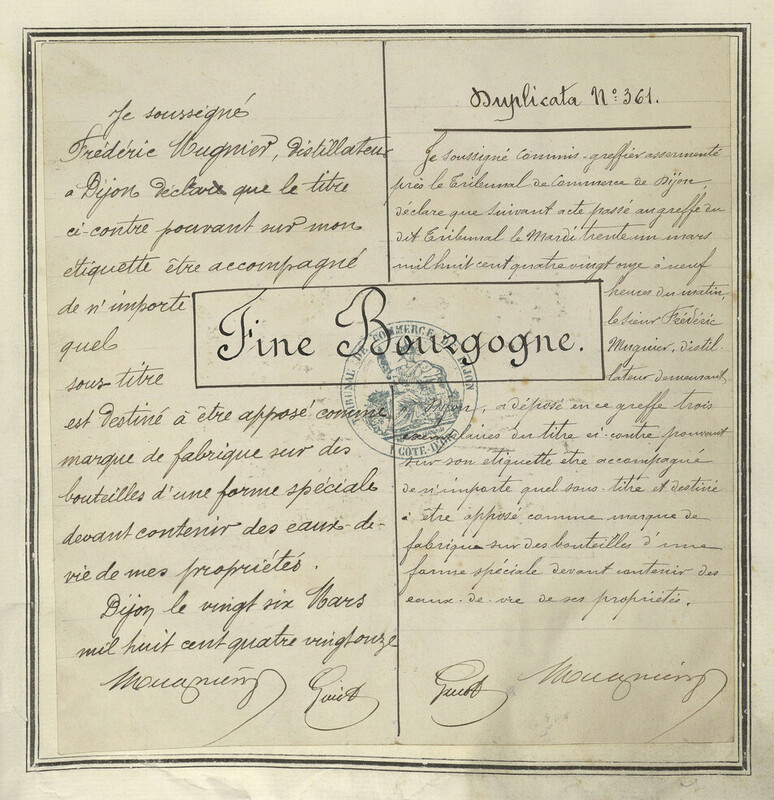 Je soussigné
Frédéric Mugnier, distillateur
a Dijon déclare que le titre
ci-contre pouvant sur mon
etiquette être accompagné
de n'importe
quel
sous-titre
est destiné à être apposé comme
marque de fabrique sur des
bouteilles d'une forme spéciale
devant contenir des eaux-de-
vie de mes propriétés.
Dijon le vingt six Mars
mil huit cent quatre vingt onze
Mugnier
Guiot
Fine Bourgogne.
TRIBUNAL DE COMMERCE DE DIJON
(CÔTE-D'OR)
Duplicata N° 361.
Je soussigné Commis-greffier assermenté
près le Tribunal de Commerce de Dijon
déclare que suivant acte passé au greffe du
dit Tribunal le Mardi trente un mars
mil huit cent quatre vingt onze à neuf
heures du matin,
le sieur Frédéric
Mugnier, distil-
lateur demeurant
à Dijon, a déposé en ce greffe trois
exemplaires du titre ci-contre pouvant
sur son etiquette être accompagné
de n'importe quel sous-titre et destiné
à être apposé comme marque de
fabrique sur des bouteilles d'une
forme spéciale devant contenir des
eaux-de-vie de ses propriétés.
Guiot
Mugnier